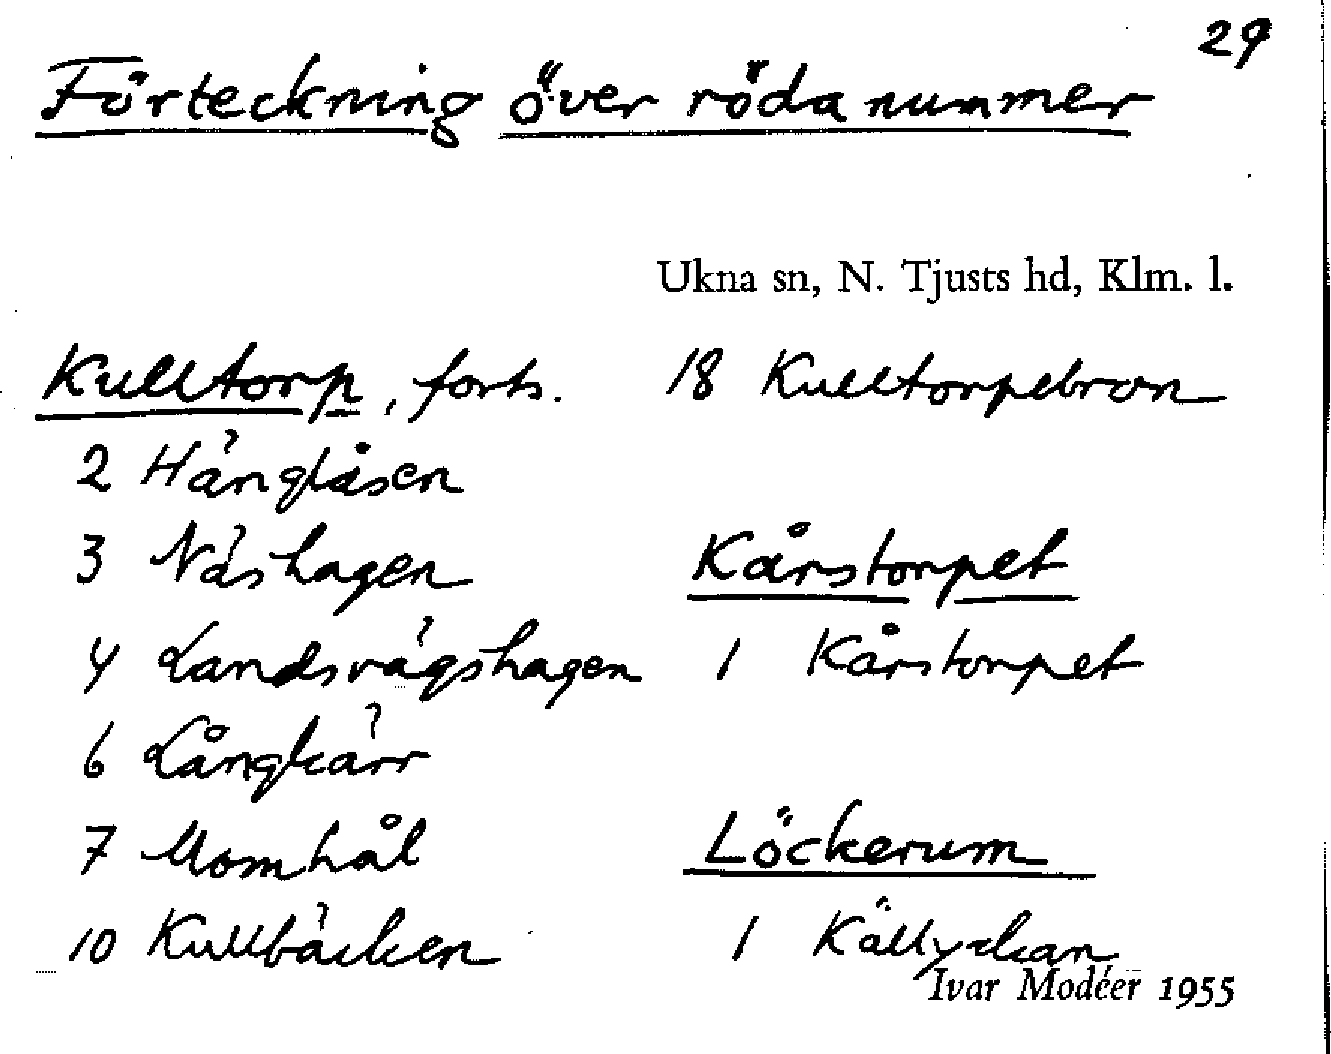 29
Förteckning över röda nummer
Ukna sn, N. Tjusts hd, Klm. l.
Kulltorp, forts.
2 Hänglåsen
3 Näshagen
4 Landsvägshagen
6 Långkärr
7 Momhål
10 Kullbäcken
18 Kulltorpebron
Kårstorpet
1 Kårstorpet
Löckerum
1 Källyckan
Ivar Modéer 1955